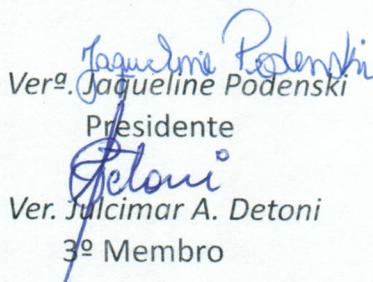 Jaqueline Podenski
Verª. Jaqueline Podenski
Presidente
Detoni
Ver. Julcimar A. Detoni
3º Membro